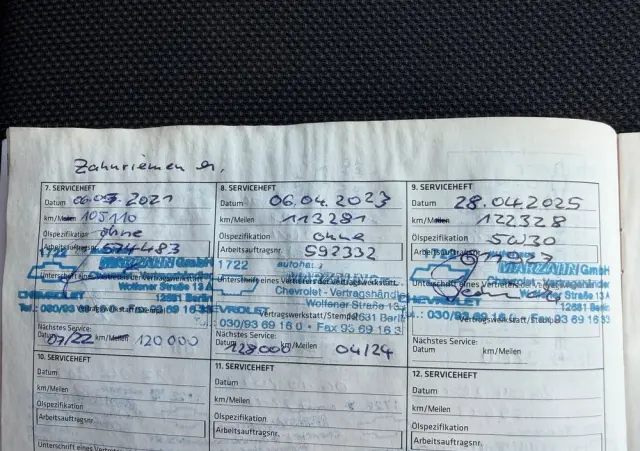 Zahnriemen er.
7. SERVICEHEFT
Datum 06.07.2021
km/Meilen 105110
Ölspezifikation ohne
Arbeitsauftragsnr. 574483
1722
MARZAHN GmbH
Chevrolet - Vertragshändler
Wolfener Straße 13 A
12681 Berlin
CHEVROLET
Vertragswerkstatt/Stempel
Nächstes Service:
07/22 km/Meilen 120 000
8. SERVICEHEFT
Datum 06.04.2023
km/Meilen 113281
Ölspezifikation ohne
Arbeitsauftragsnr. 592332
1722 autohaus
MARZAHN
Unterschrift eines Vertreters der Vertragswerkstatt
Chevrolet - Vertragshändl
Wolfener Straße 13
12681 Berlin
Vertragswerkstatt/Stempel
030/93 69 16 0 • Fax 93 69 16 33
Nächstes Service:
128000 04/24
9. SERVICEHEFT
Datum 28.04.2025
km/Meilen 122328
Ölspezifikation 5W30
Arbeitsauftragsnr.
MARZAHN GmbH
Chevrolet - Vertragshändler
Wolfener Straße 13 A
12681 Berlin
CHEVROLET
030/93 69 16 0 • Fax 93 69 16 33
Vertragswerkstatt/Stempel
Nächstes Service:
Datum km/Meilen
10. SERVICEHEFT
Datum
km/Meilen
Ölspezifikation
Arbeitsauftragsnr.
Unterschrift eines Vertreters
11. SERVICEHEFT
Datum
km/Meilen
Ölspezifikation
Arbeitsauftragsnr.
12. SERVICEHEFT
Datum
km/Meilen
Ölspezifikation
Arbeitsauftragsnr.